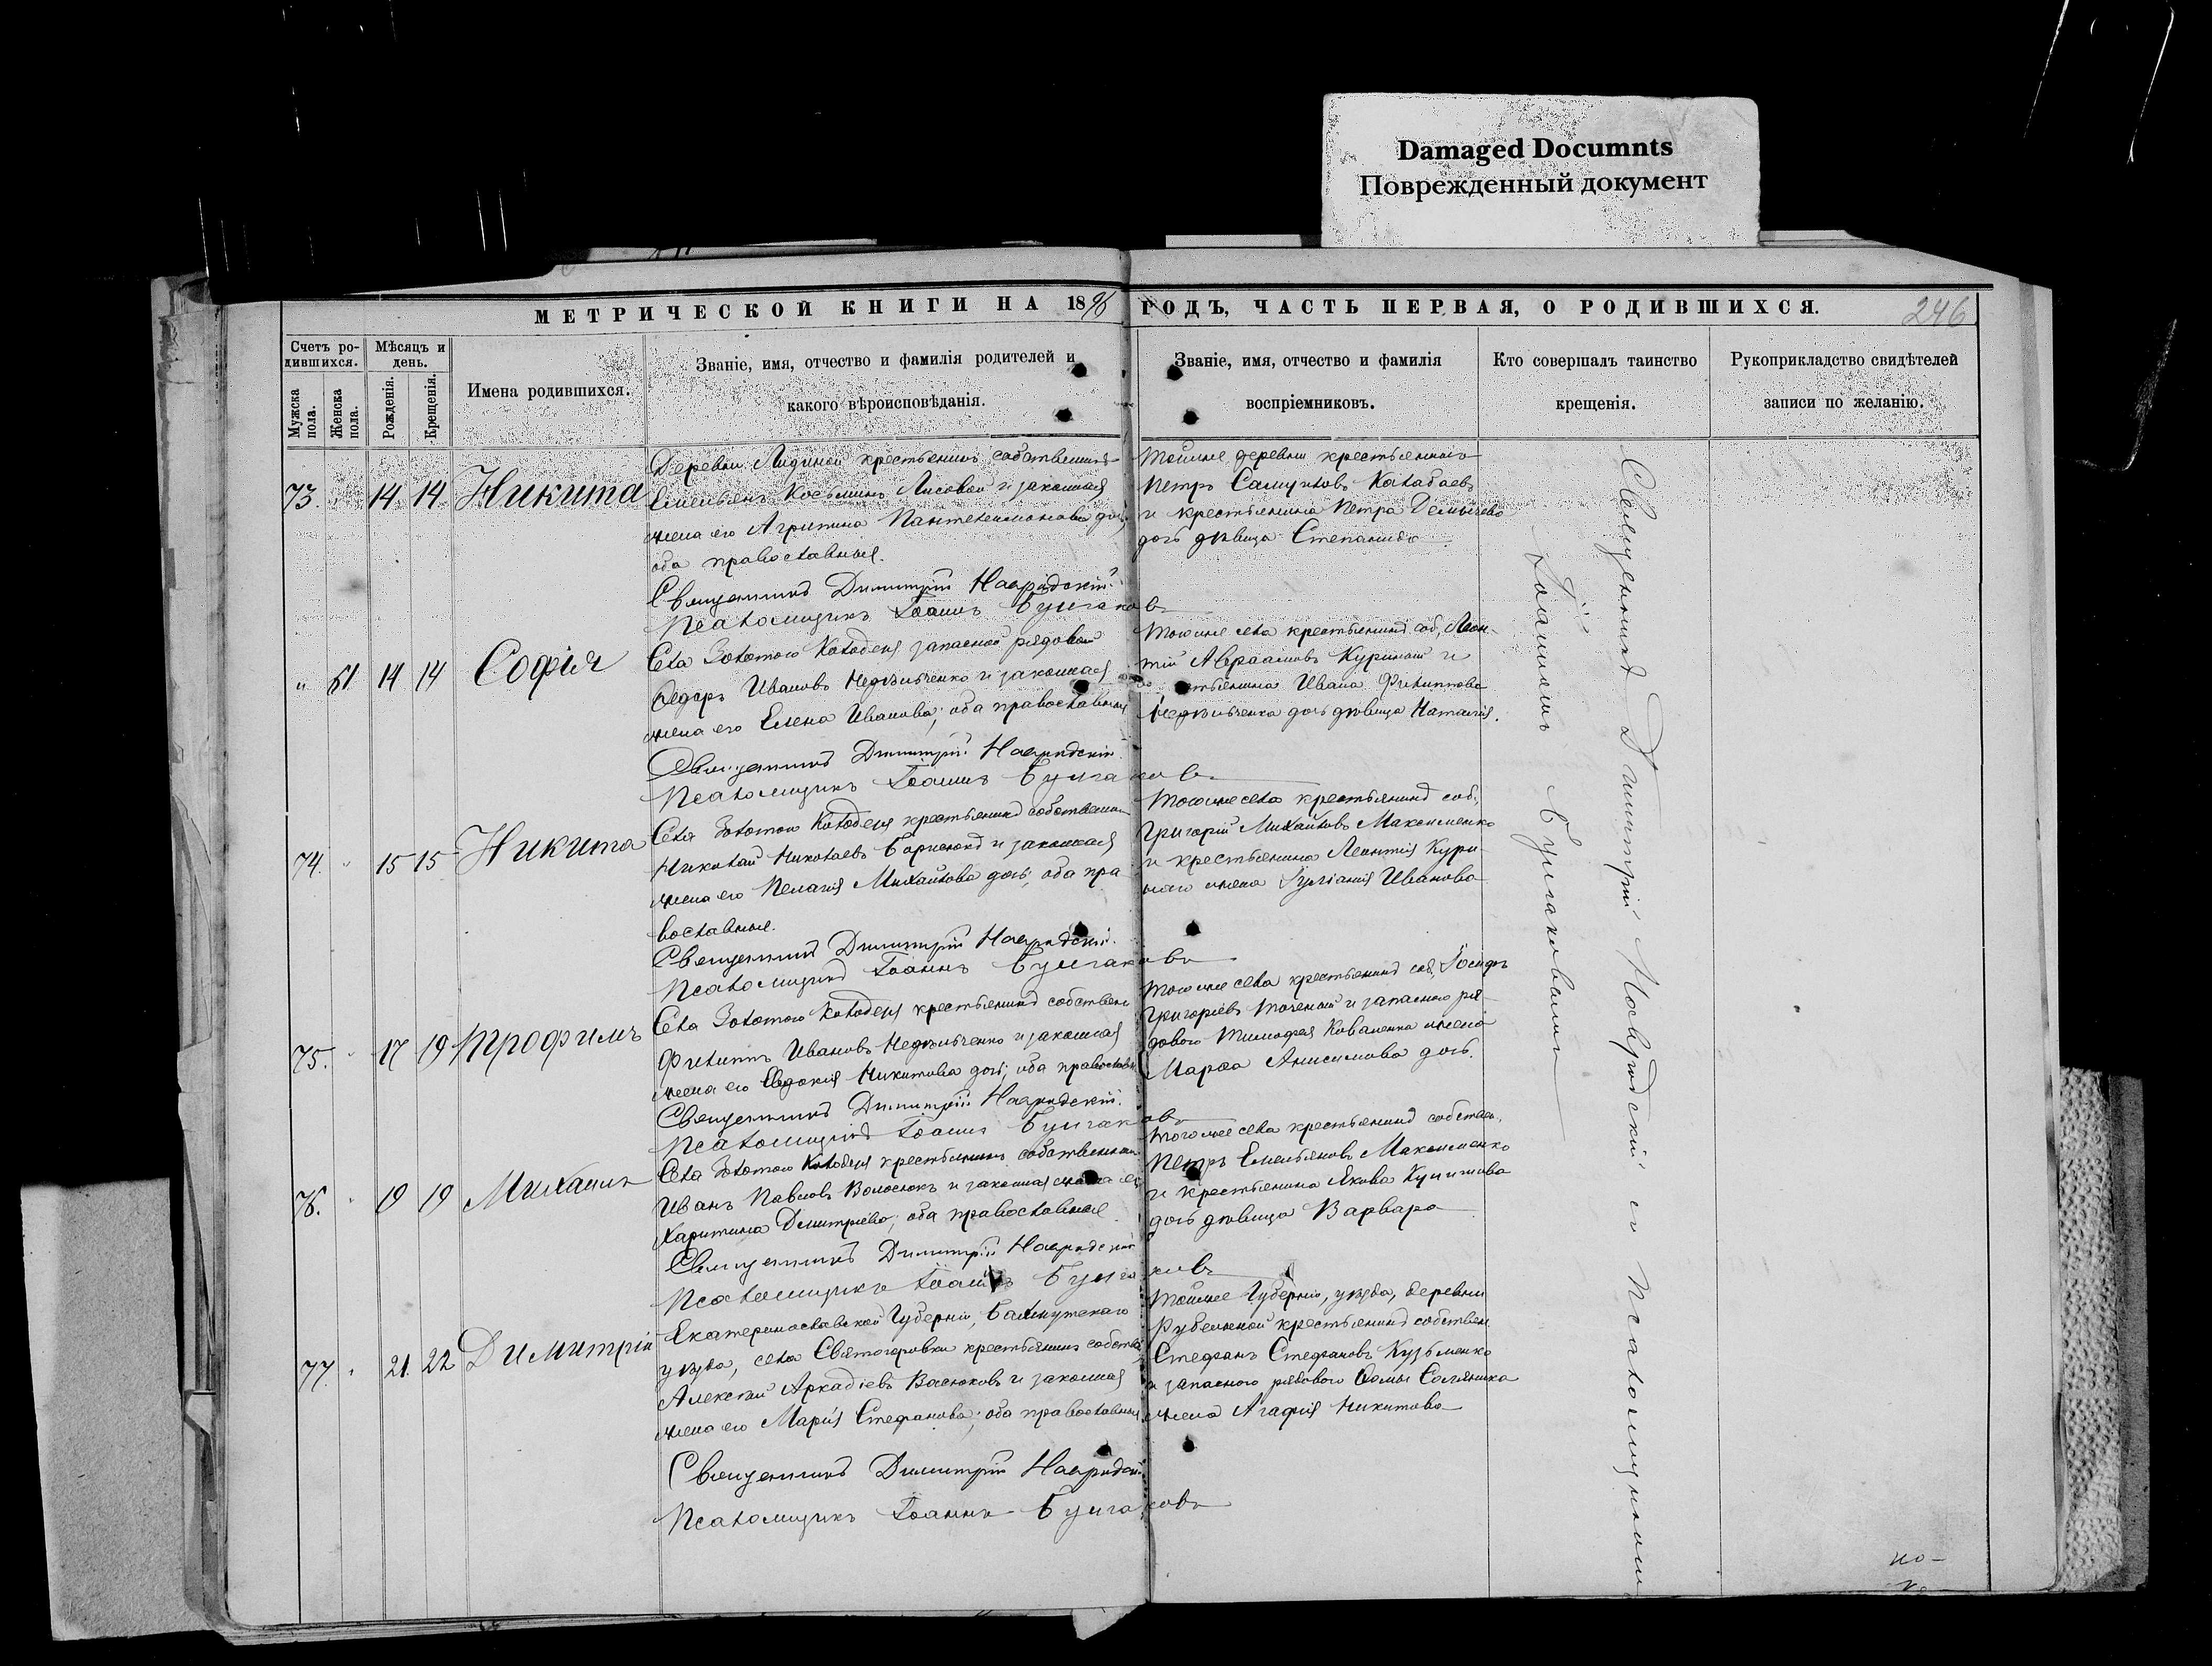 Damaged Documnts
Поврежденный документ
МЕТРИЧЕСКОЙ КНИГИ НА 1896 ГОДЪ, ЧАСТЬ ПЕРВАЯ, О РОДИВШИХСЯ.
246
Счетъ ро-
дившихся.
Мужска
пола.
Женска
пола.
Мѣсяцъ и
день.
Рожденія.
Крещенія.
Имена родившихся.
Званіе, имя, отчество и фамилія родителей и
какого вѣроисповѣданія.
Званіе, имя, отчество и фамилія
воспріемниковъ.
Кто совершалъ таинство
крещенія.
Рукоприкладство свидѣтелей
записи по желанію.
73. 14 14 Никита
Деревни крестьянинъ собственникъ
Емельянъ Косьминъ Лисовой и законная
жена его Агрипина Пантелеимонова дочь,
оба православныя.
Тойже деревни крестьянинъ
Петръ
и крестьянина Петра
дочь дѣвица Степанида
Священникъ Димитрій
Псаломщикъ Іоаннъ Булгаковъ
" 61 14 14 Софія
Села Золотого Колодезя запасной рядовой
Ѳедоръ Ивановъ Недѣльченко и законная
жена его Елена Иванова; оба православныя
Тогоже села крестьянинъ соб. Леон-
тій Авраамовъ Куриной и
Ивана Филиппова
Недѣльченка дочь дѣвица Наталія.
Священникъ Димитрій
Псаломщикъ Іоаннъ Булгаковъ
74. " 15 15 Никита
Села Золотого Колодезя крестьянинъ собственни
Николай Николаевъ Борисюкъ и законная
жена его Пелагія Михайлова дочь; оба пра
вославныя.
Тогоже села крестьянинъ соб.
Григорій Михайловъ Максименко
и крестьянина Леонтія Кури-
наго жена Іуліанія Иванова
Священникъ Димитрій
Псаломщикъ Іоаннъ Булгаковъ
75. " 17 19 Трофимъ
Села Золотого Колодезя крестьянинъ собствен
Филиппъ Ивановъ Недѣльченко и законная
жена его Евдокія Никитова дочь; оба православн
Тогоже села крестьянинъ соб. Іосифъ
Григорьевъ Точеный и запасного ря-
дового Тимофея Коваленка жена
Марѳа Анисимова дочь.
Священникъ Димитрій
Псаломщикъ Іоаннъ Булгаковъ
76. " 19 19 Михаилъ
Села Золотого Колодезя крестьянинъ собственни
Иванъ Павловъ Волосюкъ и законная жена его
Харитина Димитріева; оба православныя
Тогоже села крестьянинъ собствен.
Петръ Емельяновъ Максименко
и крестьянина Якова
дочь дѣвица Варвара
Священникъ Димитрій
Псаломщикъ Іоаннъ Булгаковъ
77. " 21 22 Димитрій
Екатеринославской Губерніи, Бахмутскаго
уѣзда, села Святогоровки крестьянинъ собств
Алексѣй Аркадіевъ Васюковъ и законная
жена его Марія Стефанова; оба православныя
Тойже Губерніи, уѣзда, деревни
крестьянинъ собствен
Стефанъ Стефановъ Кузьменко
и запасного рядового Ѳомы
жена Агафія Никитова
Священникъ Димитрій
Псаломщикъ Іоаннъ Булгаковъ
Священникъ Димитрій съ Псаломщикомъ
Іоанномъ Булгаковымъ
но-